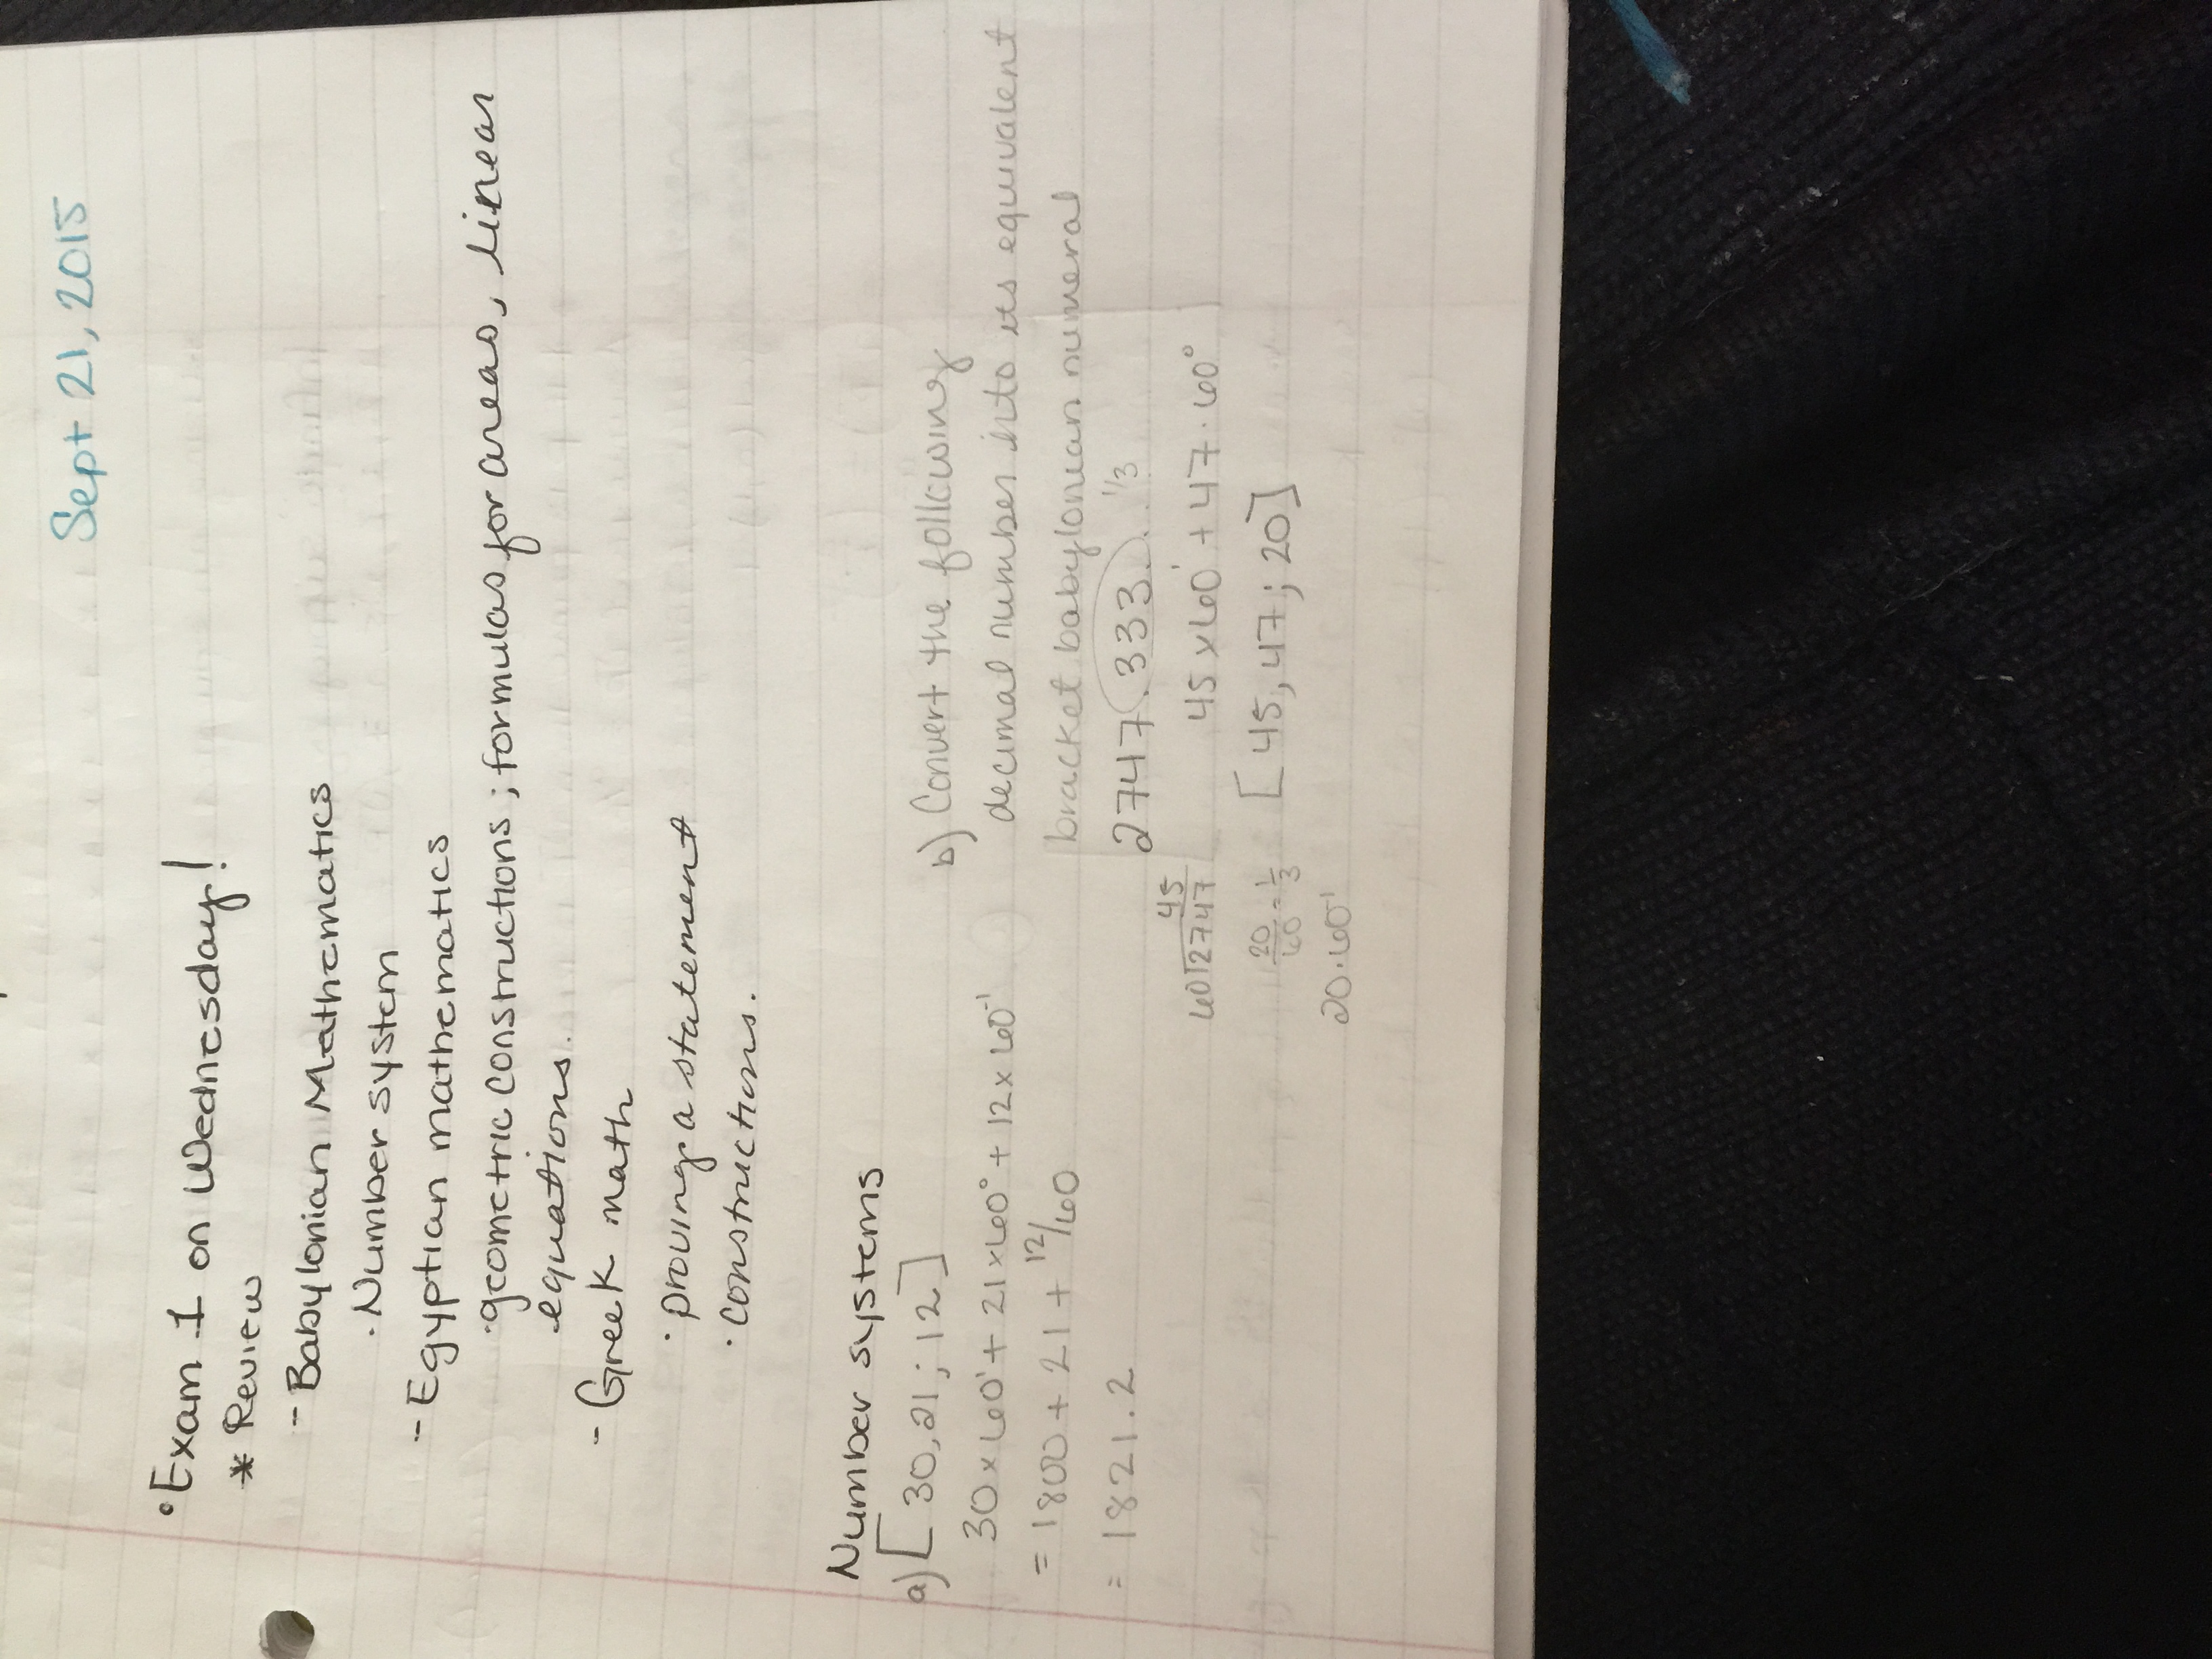 Sept 21, 2015
• Exam 1 on Wednesday!
* Review
- Babylonian Mathematics
· Number system
- Egyptian mathematics
· geometric constructions; formulas for areas, linear
equations.
- Greek math
· proving a statement
· constructions.
Number systems
a) [30,21;12]
30×60¹+21×60°+12×60⁻¹
= 1800+21+12/60
= 1821.2
b) Convert the following
decimal number into its equivalent
bracket babylonian numeral
2747.333... 1/3
45
60⟌2747
45×60¹+47·60°
20/60=1/3
[45,47;20]
20·60⁻¹